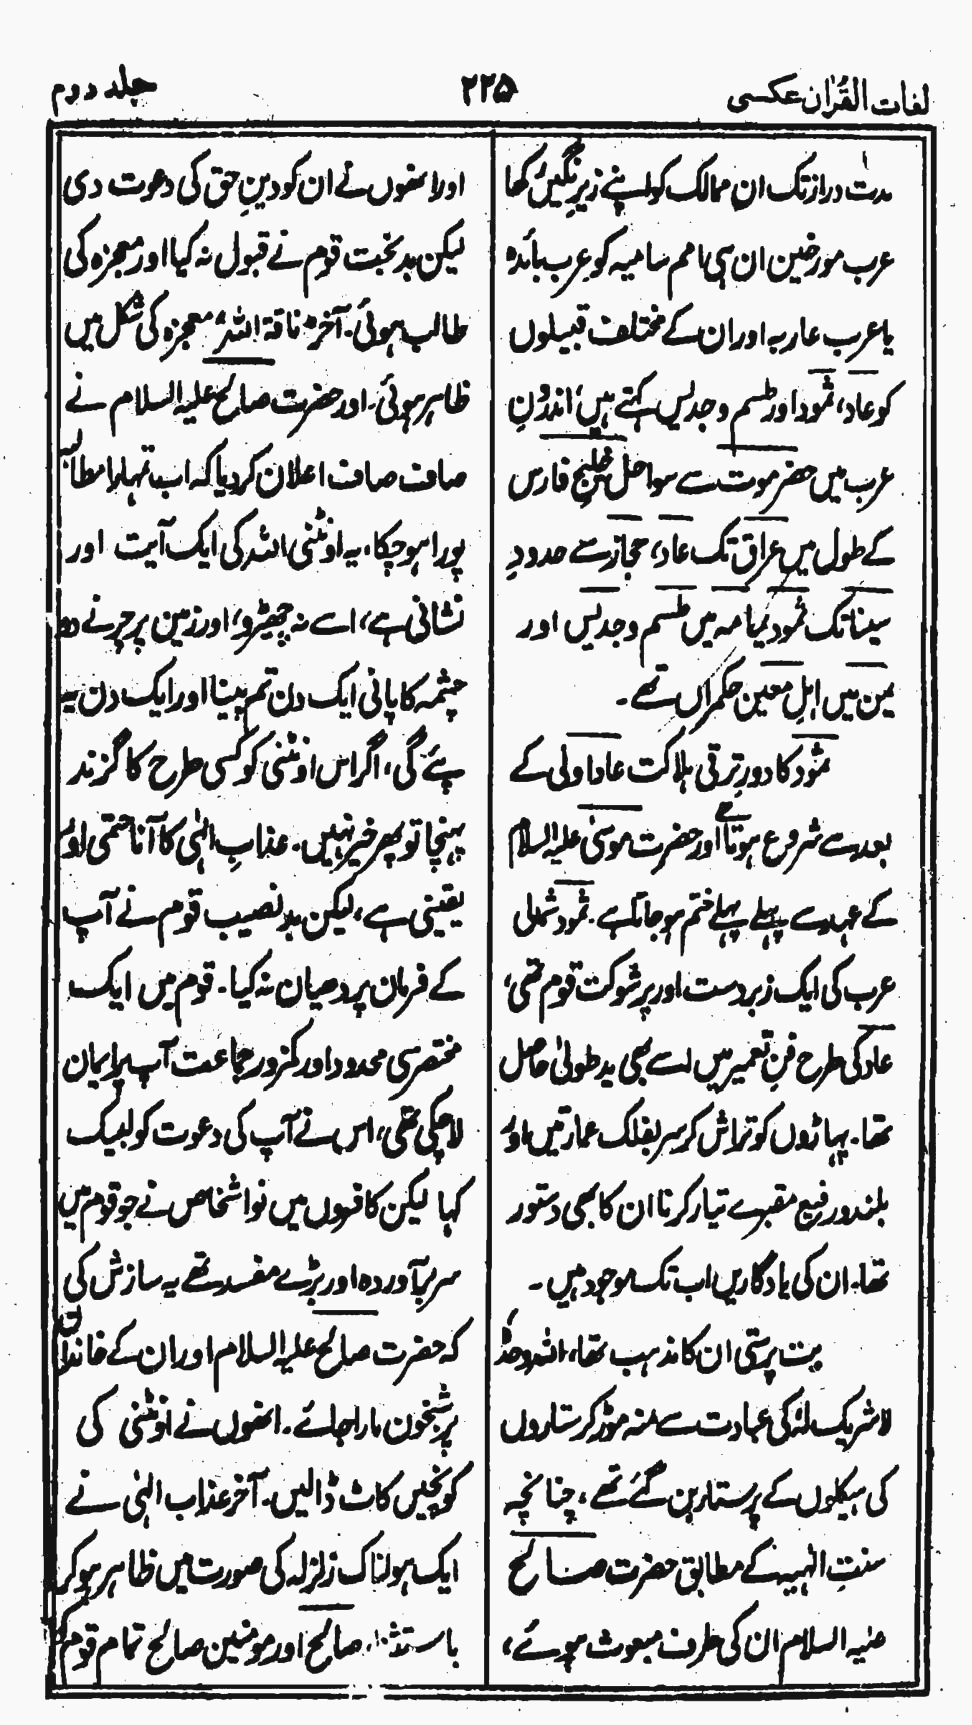 لغات القرآن عکسی
۲۲۵
جلد دوم
مدت دراز تک ان ممالک کو اپنے زیرِ نگیں رکھا
عرب مورخین ان ہی امم سامیہ کو عرب بائدہ
یا عرب عاربہ اور ان کے مختلف قبیلوں
کو عاد، ثمود اور طسم و جدیس کہتے ہیں، اندرونِ
عرب میں حضرموت سے سواحل خلیج فارس
کے طول میں عراق تک عاد، حجاز سے حدودِ
سینا تک ثمود یمامہ میں طسم و جدیس اور
یمن میں اہلِ معین حکمراں تھے۔
ثمود کا دورِ ترقی ہلاکت عاد اولیٰ کے
بعد سے شروع ہوتا ہے اور حضرت موسیٰ علیہ السلام
کے عہد سے پہلے پہلے ختم ہو جاتا ہے۔ ثمود شمالی
عرب کی ایک زبردست اور پرشوکت قوم تھی،
عاد کی طرح فنِ تعمیر میں اسے بھی ید طولیٰ حاصل
تھا۔ پہاڑوں کو تراش کر سر بفلک عمارتیں اور
بلند و رفیع مقبرے تیار کرنا ان کا بھی دستور
تھا۔ ان کی یادگاریں اب تک موجود ہیں۔
بت پرستی ان کا مذہب تھا، اللہ وحدہٗ
لا شریک لہٗ کی عبادت سے منہ موڑ کر ستاروں
کی ہیکلوں کے پرستار بن گئے تھے، چنانچہ
سنتِ الٰہیہ کے مطابق حضرت صالح
علیہ السلام ان کی طرف مبعوث ہوئے،
اور انھوں نے ان کو دینِ حق کی دعوت دی
لیکن بدبخت قوم نے قبول نہ کیا اور معجزہ کی
طالب ہوئی۔ آخر ناقۃ اللہ معجزہ کی شکل میں
ظاہر ہوئی۔ اور حضرت صالح علیہ السلام نے
صاف صاف اعلان کر دیا کہ اب تمہارا مطالبہ
پورا ہو چکا، یہ اونٹنی اللہ کی ایک آیت اور
نشانی ہے، اسے نہ چھیڑو، اور زمین پر چرنے دو
چشمہ کا پانی ایک دن تم پینا اور ایک دن یہ
پئے گی، اگر اس اونٹنی کو کسی طرح کا گزند
پہنچا تو پھر خیر نہیں۔ عذابِ الٰہی کا آنا حتمی اور
یقینی ہے، لیکن بدنصیب قوم نے آپ
کے فرمان پر دھیان نہ کیا۔ قوم میں ایک
مختصر سی محدود اور کمزور جماعت آپ پر ایمان
لا چکی تھی، اس نے آپ کی دعوت کو لبیک
کہا لیکن کافروں میں نو اشخاص نے جو قوم میں
سر برآوردہ اور بڑے مفسد تھے یہ سازش کی
کہ حضرت صالح علیہ السلام اور ان کے خاندان
پر شبخون مارا جائے۔ انھوں نے اونٹنی کی
کونچیں کاٹ ڈالیں۔ آخر عذاب الٰہی نے
ایک ہولناک زلزلہ کی صورت میں ظاہر ہو کر
باستثناء صالح اور مومنین صالح تمام قوم